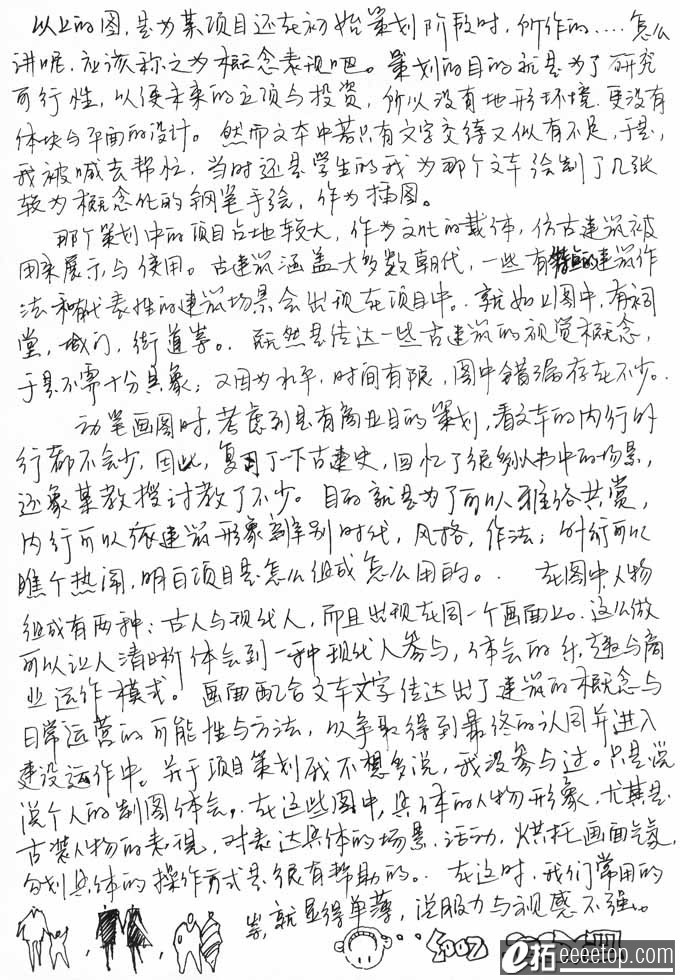 以上的图，是为某项目还在初始策划阶段时，所作的……怎么
讲呢，应该称之为概念表现吧。策划的目的就是为了研究
可行性，以便未来的立项与投资，所以没有地形环境，更没有
体块与平面的设计。然而文本中若只有文字交待又似有不足，于是，
我被喊去帮忙，当时还是学生的我为那个文本绘制了几张
较为概念化的钢笔手绘，作为插图。
那个策划中的项目占地较大，作为文化的载体，仿古建筑被
用来展示与使用。古建筑涵盖大多数朝代，一些有特点的建筑作
法和代表性的建筑场景会出现在项目中。就如上图中，有祠
堂，城门，街道等。既然是传达一些古建筑的视觉概念，
于是不需十分具象；又因为水平，时间有限，图中错漏存在不少。
动笔画图时，考虑到是有商业目的策划，看文本的内行外
行都不会少，因此，复习了一下古建史，回忆了很多以书中的场景，
还象某教授讨教了不少。目的就是为了可以雅俗共赏，
内行可以依建筑形象辨别时代，风格，作法；外行可以
瞧个热闹，明白项目是怎么组成怎么用的。 在图中人物
组成有两种：古人与现代人，而且出现在同一个画面上。这么做
可以让人清晰体会到一种现代人参与，体会的乐趣与商
业运作模式。画面配合文本文字传达出了建筑的概念与
日常运营的可能性与方法，以争取得到最终的认同并进入
建设运作中。关于项目策划我不想多说，我没参与过。只是说
说个人的制图体会。在这些图中，具体的人物形象，尤其是
古装人物的表现，对表达具体的场景，活动，烘托画面气氛，
勾划具体的操作方式是很有帮助的。在这时，我们常用的
等，就显得单薄，说服力与观感不强。
e拓 eeeetop.com